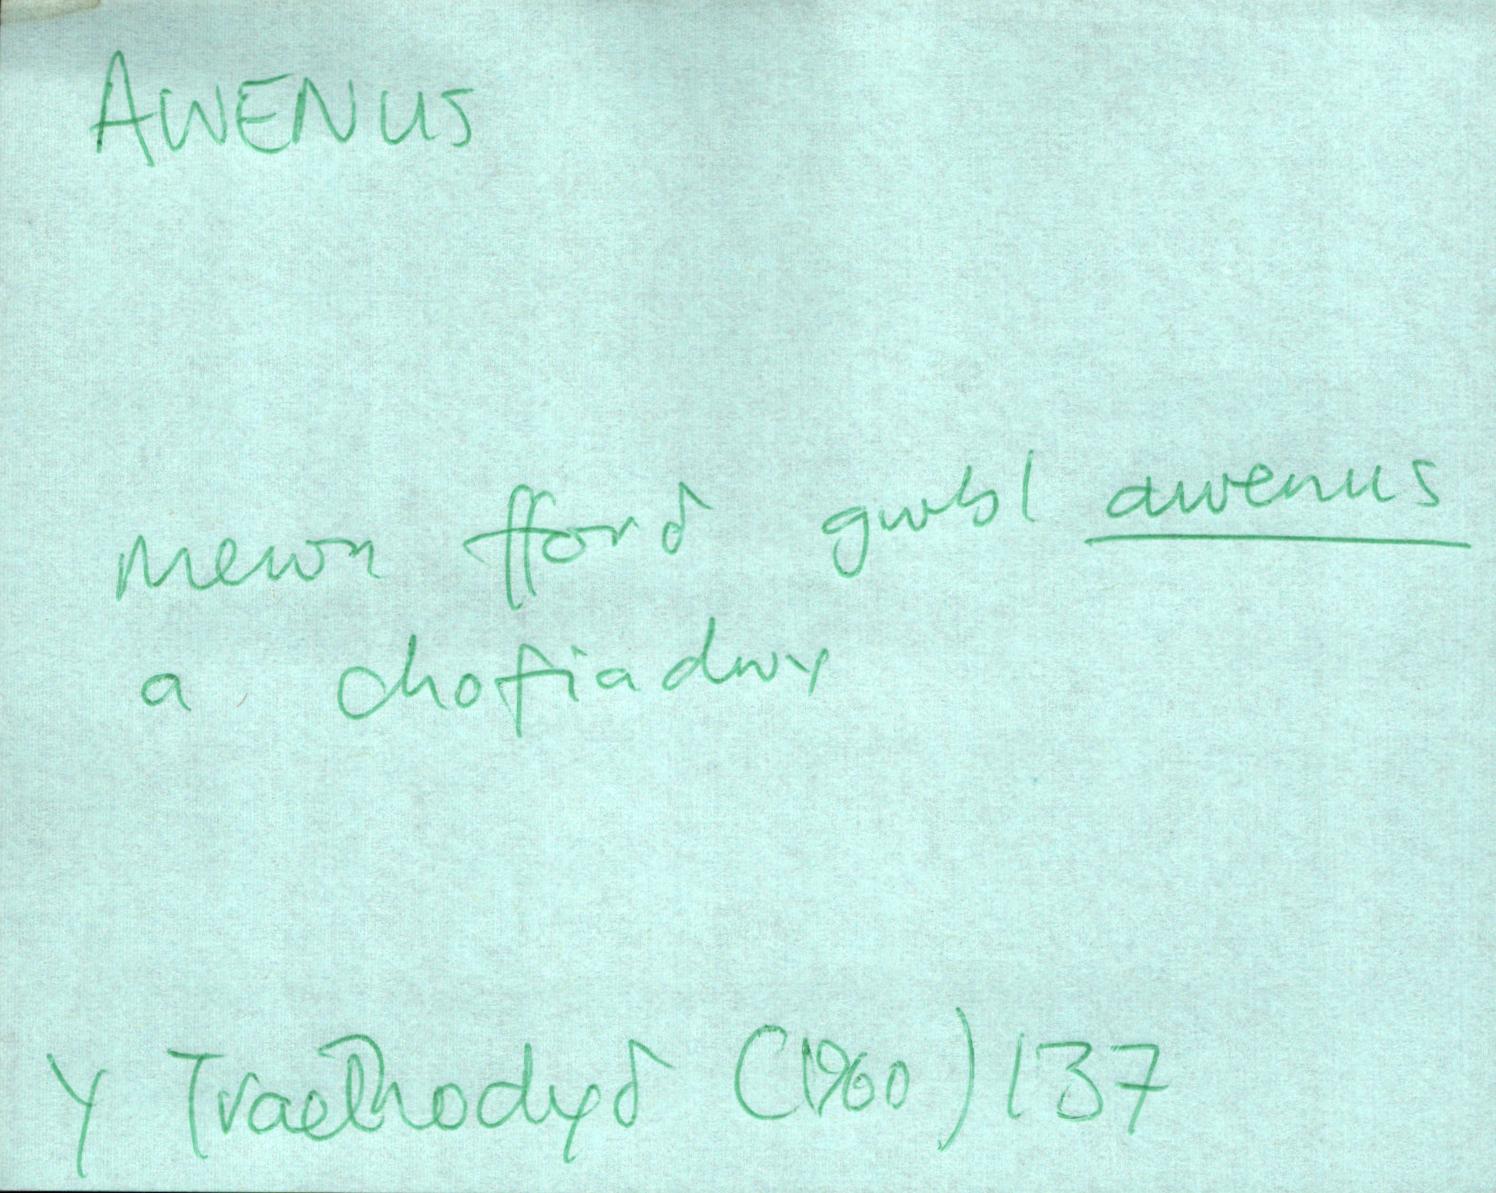 AWENUS
mewn fford gwbl awenus
a chofiadwy
Y Traethodyd (1960) 137